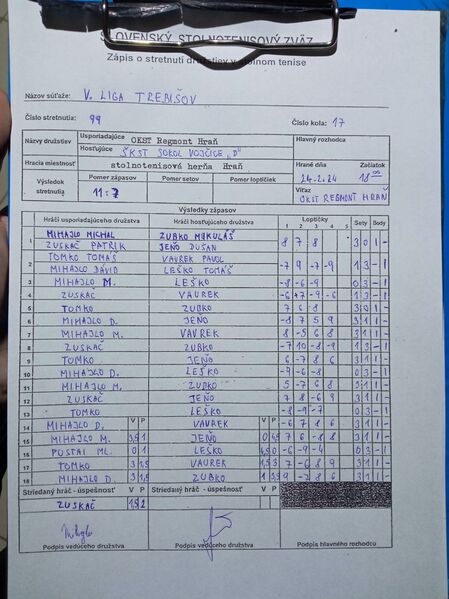 SLOVENSKÝ STOLNOTENISOVÝ ZVÄZ
Zápis o stretnutí družstiev v stolnom tenise
Názov súťaže: V. LIGA TREBIŠOV
Číslo stretnutia: 99 Číslo kola: 17
Názvy družstiev Usporiadajúce OKST Regmont Hraň Hlavný rozhodca
Hosťujúce ŠKST SOKOL VOJČICE "D"
Hracia miestnosť stolnotenisová herňa Hraň Hrané dňa Začiatok
Výsledok stretnutia Pomer zápasov Pomer setov Pomer loptičiek 24.2.24 18 00
11:7 Víťaz OKST REGMONT HRAŇ
Výsledky zápasov
Hráči usporiadajúceho družstva Hráči hosťujúceho družstva Loptičky Sety Body
1 2 3 4 5
1 MIHAJLO MICHAL ZUBKO MIKULÁŠ
ZUSKÁČ PATRIK JEŇO DUŠAN 8 7 8 3 0 1 -
2 TOMKO TOMÁŠ VAUREK PAVOL
MIHAJLO DÁVID LEŠKO TOMÁŠ -7 9 -7 -9 1 3 - 1
3 MIHAJLO M. LEŠKO -8 -6 -9 0 3 - 1
4 ZUSKÁČ VAUREK 1 3 - 1
5 TOMKO ZUBKO 7 6 8 3 0 1 -
6 MIHAJLO D. JEŇO -1 7 5 9 3 1 1 -
7 MIHAJLO M. VAVREK 8 -5 6 8 3 1 1 -
8 ZUSKÁČ ZUBKO -7 10 -8 -9 1 3 - 1
9 TOMKO JEŇO 6 -7 8 6 3 1 1 -
10 MIHAJLO D. LEŠKO -6 -8 0 3 - 1
11 MIHAJLO M. ZUBKO 5 -7 6 8 3 1 1 -
12 ZUSKÁČ JEŇO 7 8 -6 9 3 1 1 -
13 TOMKO LEŠKO -8 -9 -7 0 3 - 1
14 MIHAJLO D. V P VAVREK V P -6 7 8 6 3 1 1 -
15 MIHAJLO M. 3,5 1 JEŇO 0 4,5 7 6 -8 8 3 1 1 -
16 PUSTAI ML. 0 1 LEŠKO -6 -9 -4 0 3 - 1
17 TOMKO 3 1,5 VAUREK 1,5 3 7 -6 8 9 3 1 1 -
18 MIHAJLO D. 3 1,5 ZUBKO 1 3,5 9 -7 8 6 3 1 1 -
Striedaný hráč - úspešnosť V P Striedaný hráč - úspešnosť V P
ZUSKÁČ 1,5 2
Podpis vedúceho družstva Podpis vedúceho družstva Podpis hlavného rozhodcu